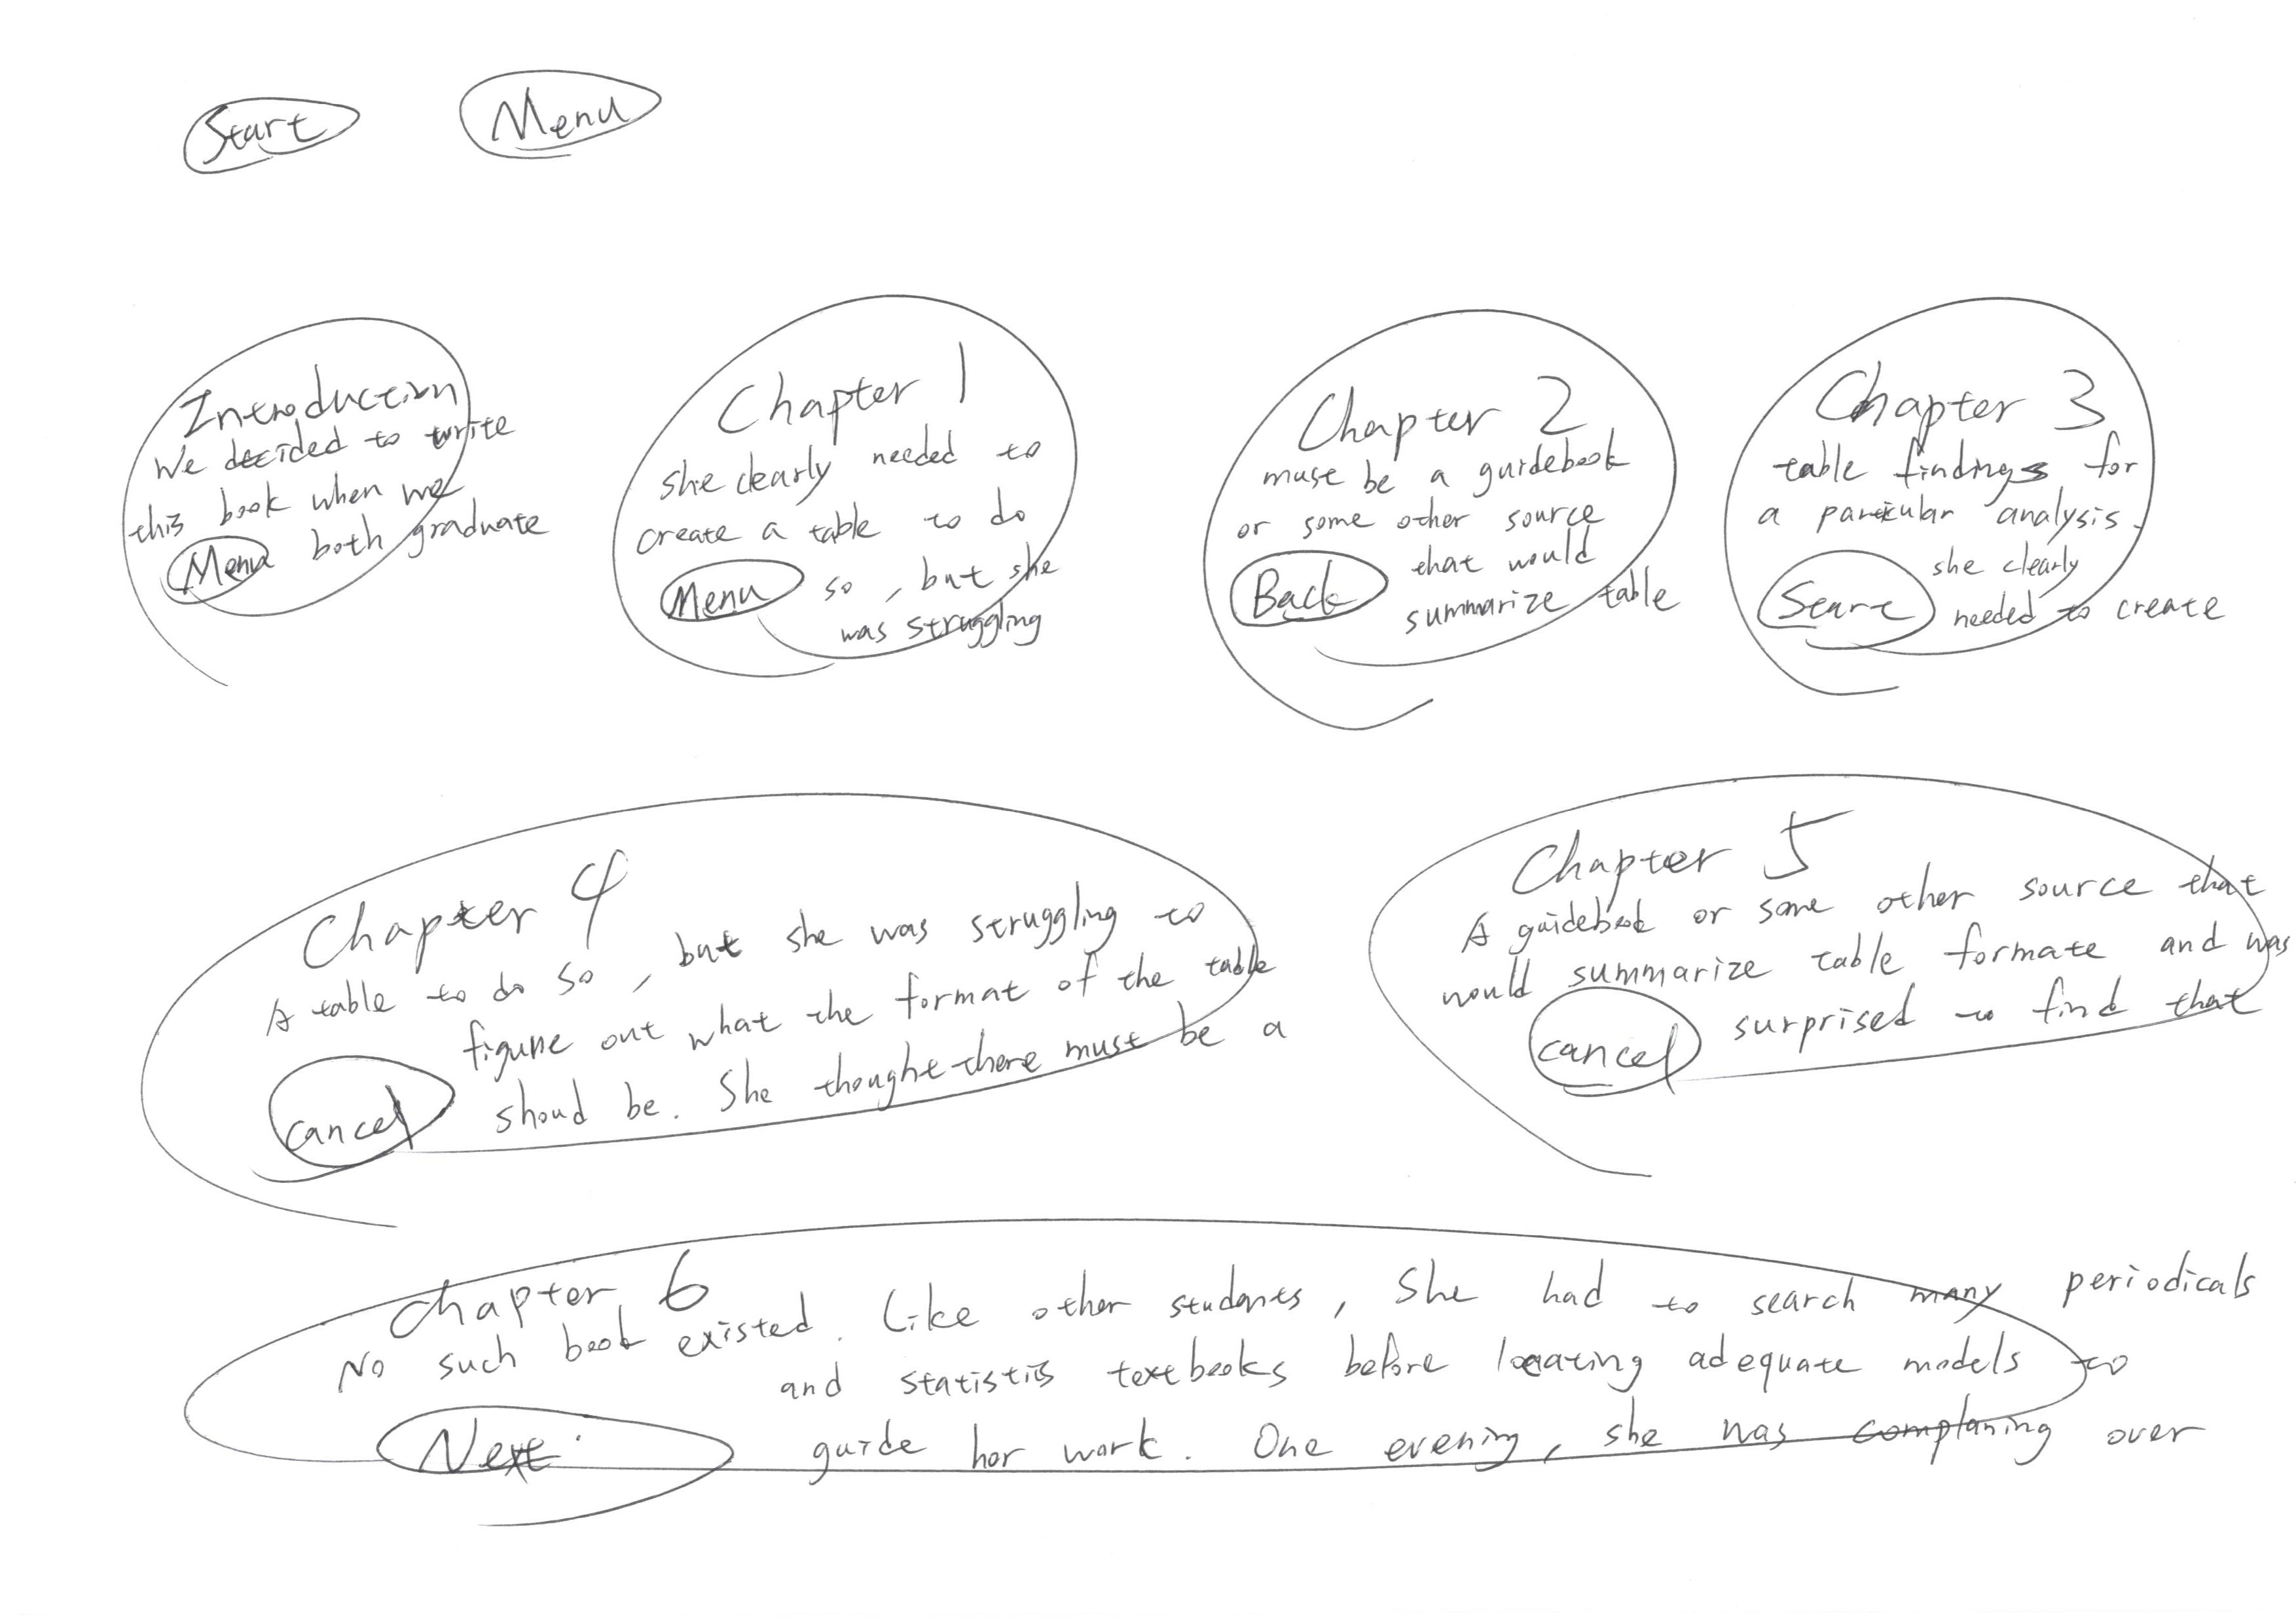 Start
Menu
Introduction
We decided to write
this book when we
Menu both graduate
Chapter 1
she clearly needed to
create a table to do
Menu so, but she
was struggling
Chapter 2
must be a guidebook
or some other source
Back that would
summarize table
Chapter 3
table findings for
a particular analysis.
Start she clearly
needed to create
Chapter 4
A table to do so, but she was struggling to
figure out what the format of the table
cancel shoud be. She thought there must be a
Chapter 5
A guidebook or some other source that
would summarize table formate and was
cancel surprised to find that
Chapter 6
No such book existed. Like other students, She had to search many periodicals
and statistics textbooks before locating adequate models to
Next guide her work. One evening, she was complaning over